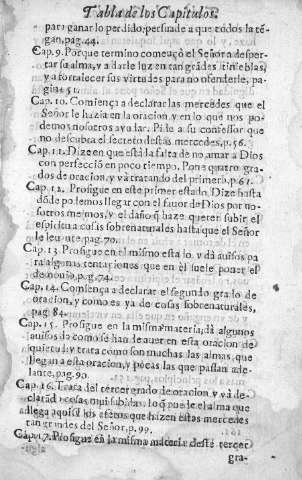 Tabla de los Capitulos.
para ganar lo perdido, persuade a que todos la tē-
gan, pag. 44.
Cap. 9. Porque termino comēço el Señor a desper-
tar su alma, y a darle luz en tan grādes tinieblas,
y a fortalecer sus virtudes para no ofenderle, pa-
gina 51.
Cap. 10. Comiença a declarar las mercedes que el
Señor le hazia en la oracion y en lo que nos po-
demos nosotros ayudar. Pide a su confessor que
no descubra el secreto destas mercedes, p. 56.
Cap. 11. Dize en que està la falta de no amar a Dios
con perfecciō en poco tiempo. Pone quatro gra-
dos de oracion, y và tratando del primero, p. 61.
Cap. 12. Prosigue en este primer estado. Dize hasta
dōde podemos llegar con el fauor de Dios por no-
sotros mesmos, y el daño q̄ haze querer subir el
espiritu a cosas sobrenaturales hasta que el Señor
le leuante pag. 70.
Cap. 13. Prosigue en el mismo estado. y dà auisos pa
ra algunas tentaciones que en èl suele poner el
demonio, pag. 74.
Cap. 14. Comença a declarar el segundo grado de
oracion, y como es ya de cosas sobrenaturales,
pag. 84.
Cap. 15. Prosigue en la misma materia, dà algunos
auisos de como se han de auer en esta oracion de
quietud, y trata como son muchas las almas, que
llegan a esta oracion, y pocas las que passan ade-
lante, pag. 90.
Cap. 16. Trata del tercer grado de oracion, y và de-
clarādo cosas mui subidas, lo q̄ puede el alma que
a llega aqui i los efetos que hazen estas mercedes
tan grandes del Señor, p. 99.
Cap. 17. Prosigue en la misma materia deste tercer
gra-